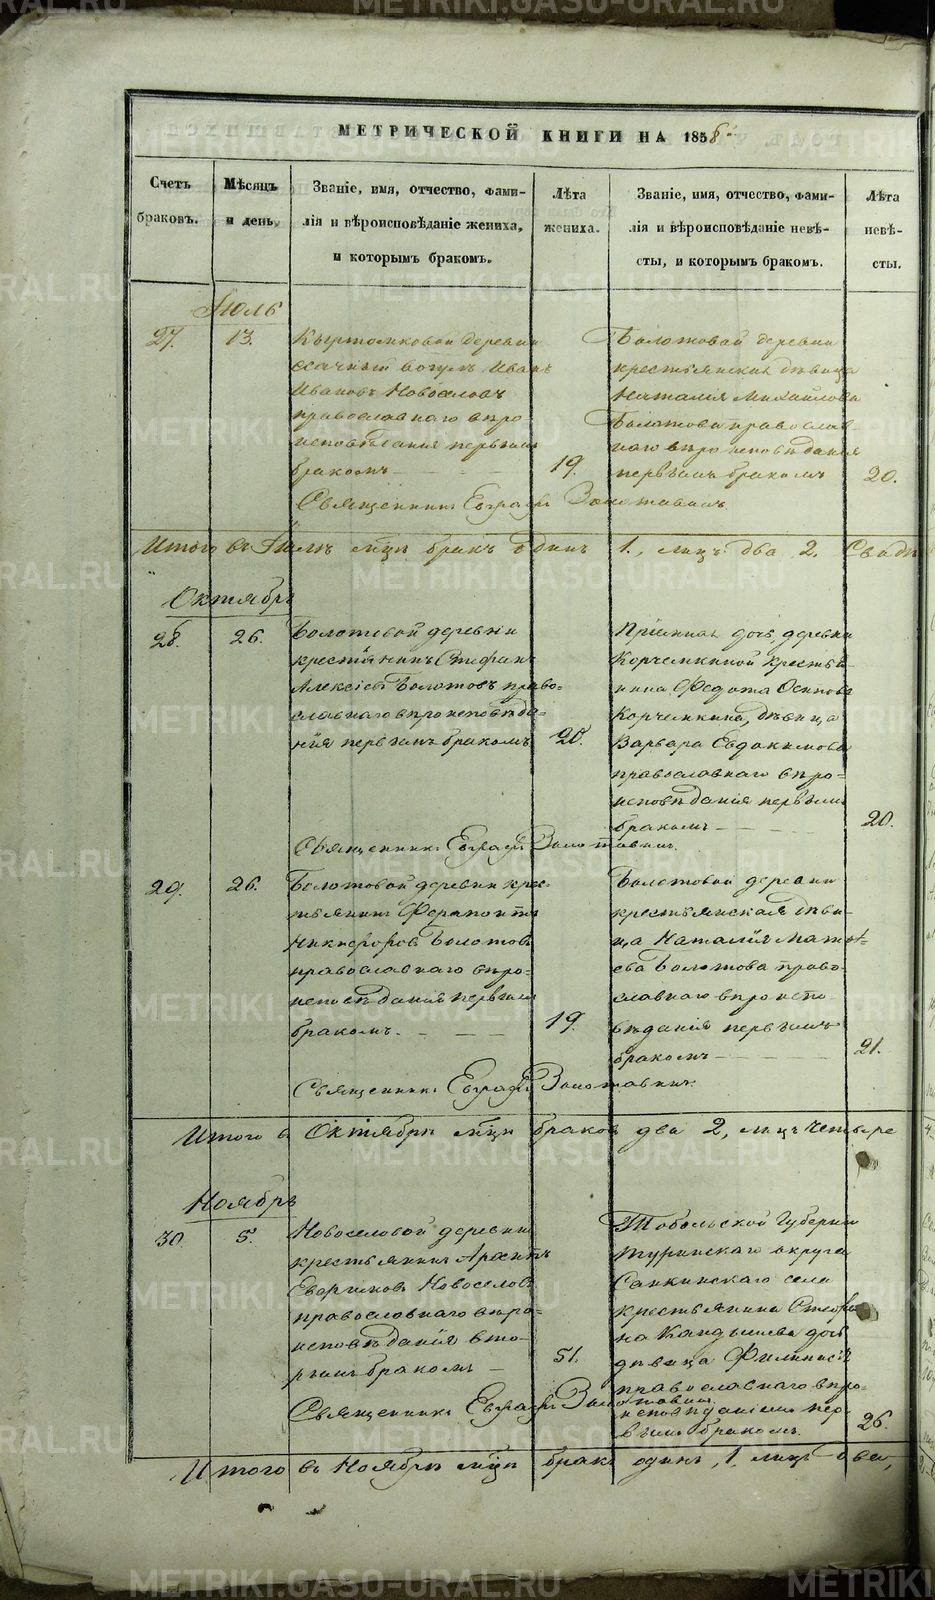 МЕТРИЧЕСКОЙ КНИГИ НА 1858
Счетъ браковъ.
Мѣсяцъ и день.
Званіе, имя, отчество, фами-
лія и вѣроисповѣданіе жениха,
и которымъ бракомъ.
Лѣта жениха.
Званіе, имя, отчество, фами-
лія и вѣроисповѣданіе невѣ-
сты, и которымъ бракомъ.
Лѣта невѣ-
сты.
Іюль
27. 13.
деревни
вогулъ Иванъ
Ивановъ Новоселовъ
православнаго вѣро
исповѣданія первымъ
бракомъ 19.
Болотовой деревни
крестьянская дѣвица
Наталія Михайлова
Болотова православ-
наго вѣроисповѣданія
первымъ бракомъ 20.
Священникъ Евграфъ
Итого въ Іюлѣ м̃цѣ бракъ одинъ 1., лицъ два 2.
Октябрь
28. 26.
Болотовой деревни
крестьянинъ Стефанъ
Алексіевъ Болотовъ право-
славнаго вѣроисповѣда-
нія первымъ бракомъ 20.
дочь, деревни
Корчемкиной крестья-
нина Федота Осипова
Корчемкина, дѣвица
Варвара Евдокимова
православнаго вѣро-
исповѣданія первымъ
бракомъ 20.
Священникъ Евграфъ
29. 26.
Болотовой деревни крес-
тьянинъ Ферапонтъ
Никифоровъ Болотовъ
православнаго вѣро-
исповѣданія первымъ
бракомъ. 19.
Болотовой деревни
крестьянская дѣви-
ца Наталія Матѳ-
ева Болотова право-
славнаго вѣроиспо-
вѣданія первымъ
бракомъ 21.
Священникъ Евграфъ
Итого въ Октябрѣ м̃цѣ браков два 2, лицъ четыре
Ноябрь
30. 5.
Новоселовой деревни
крестьянинъ
Новоселовъ
православнаго вѣро-
исповѣданія вто-
рымъ бракомъ 51.
Тобольской Губерніи
Туринскаго округа
Санкинскаго села
крестьянина Стефа-
на Кандышева дочь
дѣвица
православнаго вѣро-
исповѣданія пер-
вымъ бракомъ. 26.
Священникъ Евграфъ
Итого въ Ноябрѣ м̃цѣ бракъ одинъ, 1. лицъ два,
METRIKI.GASO-URAL.RU